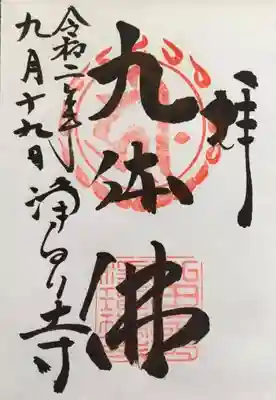 奉拝
九体佛
令和二年
九月十九日 浄瑠璃寺